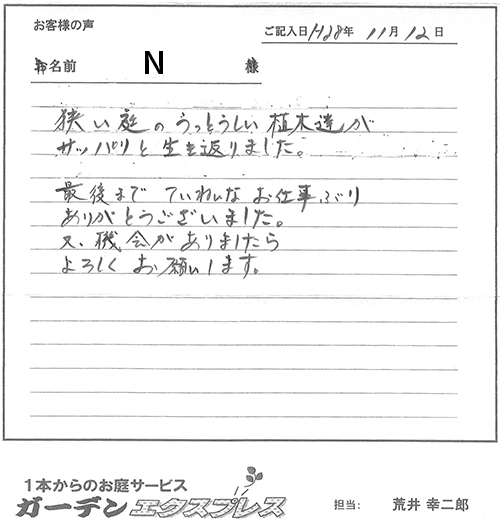 お客様の声
ご記入日 H28年 11月 12日
お名前 N 様
狭い庭のうっとうしい植木達が
サッパリと生き返りました。
最後まで ていねいな お仕事ぶり
ありがとうございました。
又、機会がありましたら
よろしく お願いします。
1本からのお庭サービス
ガーデンエクスプレス
担当: 荒井 幸二郎